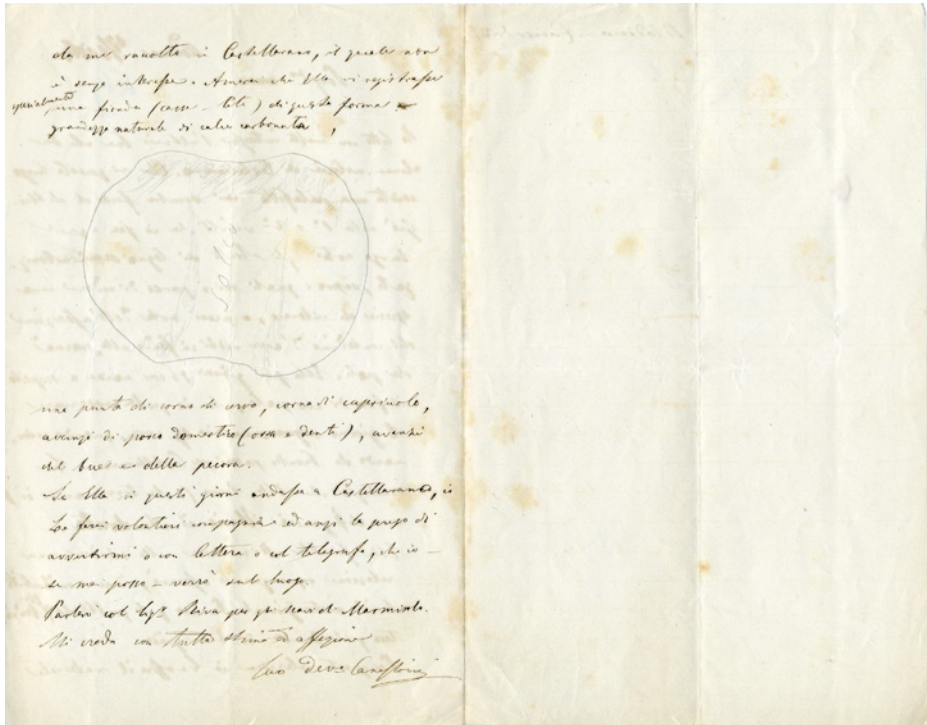 da me raccolta in Castellarano, il quale non
è senza interesse. Amerei che Ella vi registrasse
specialmente
una fionda (casse-tête) di questa forma e
grandezza naturale di calce carbonata,
una punta di corno di cervo, corna di capriuolo,
avanzi di porco domestico (ossa e denti), avanzi
del bue e della pecora.
Se Ella in questi giorni andasse a Castellarano, io
Le farei volontieri compagnia ed anzi la prego di
avvertirmi o con lettera o col telegrafo, che io –
se mai posso – verrò sul luogo.
Parlerò col Sigr Riva per gli scavi di Marmirolo.
Mi creda con tutta stima ed affezione
Suo devo Canestrini